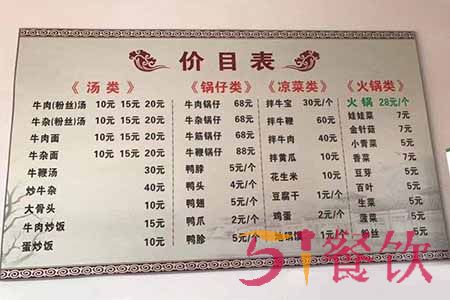 价目表
《汤类》
牛肉(粉丝)汤 10元 15元 20元
牛杂(粉丝)汤 10元 15元 20元
牛肉面 10元 15元 20元
牛杂面 10元 15元 20元
牛鞭汤 30元
炒牛杂 40元
大骨头 10元
牛肉炒饭 15元
蛋炒饭 10元
《锅仔类》
牛肉锅仔 68元
牛杂锅仔 68元
牛筋锅仔 68元
牛鞭锅仔 88元
鸭脖 5元/个
鸭头 4元/个
鸭翅 5元/个
鸭爪 2元/个
鸭胗 5元/个
《凉菜类》
拌牛宝 30元/个
拌牛鞭 60元
拌牛肉 40元
拌黄瓜 10元
花生米 10元
豆腐干 1元/个
鸡蛋 2元/个
地锅馍
《火锅类》
火锅 28元/个
娃娃菜 7元
金针菇 7元
小青菜 5元
香菜 7元
豆芽 5元
百叶 5元
生菜 5元
菠菜 5元
粉丝 5元
51餐饮